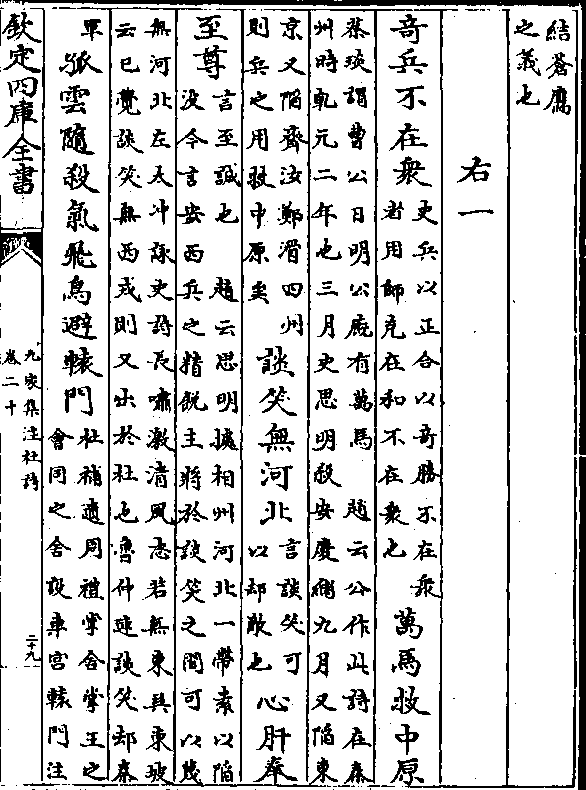 結蒼鷹
之義也
右一
奇兵不在衆
史兵以正合以奇勝不在衆
者用師克在和不在衆也
萬馬救中原
蔡琰謂曹公曰明公廐有萬馬 趙云公作此詩在秦
州時乾元二年也三月史思明殺安慶緒九月又陷東
京又陷齊汝鄭滑四州
則兵之用救中原矣
談笑無河北
言談笑可
以却敵也
心肝奉
至尊
言至誠也 趙云思明據相州河北一帶素以陷
没今言安西兵之精鋭主將於談笑之間可以蔑
無河北左太冲詠史詩長嘯激清風志若無東吳東坡
云已覺談笑無西戎則又出於杜也魯仲連談笑却秦
軍
孤雲隨殺氣飛鳥避轅門
杜補遺周禮掌舍掌王之
會同之舍設車宮轅門注
欽定四庫全書
九家集注杜詩
卷二十
二十九